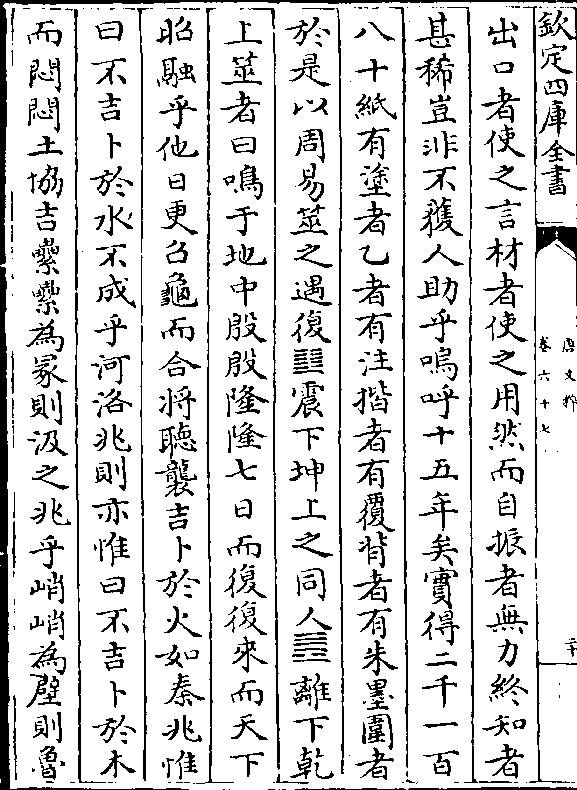 欽定四庫全書
唐文粹
卷六十七
二十
出口者使之言材者使之用然而自振者無力終知者
甚稀豈非不獲人助乎嗚呼十五年矣實得二千一百
八十紙有塗者乙者有注揩者有覆背者有朱墨圍者
於是以周易筮之遇復䷗震下坤上之同人䷌離下乾
上筮者曰鳴于地中殷殷隆隆七日而復復來而天下
昭融乎他日更召龜而合將聽襲吉卜於火如秦兆惟
曰不吉卜於水不成乎河洛兆則亦惟曰不吉卜於木
而悶悶土協吉纍纍為冢則汲之兆乎峭峭為壁則魯